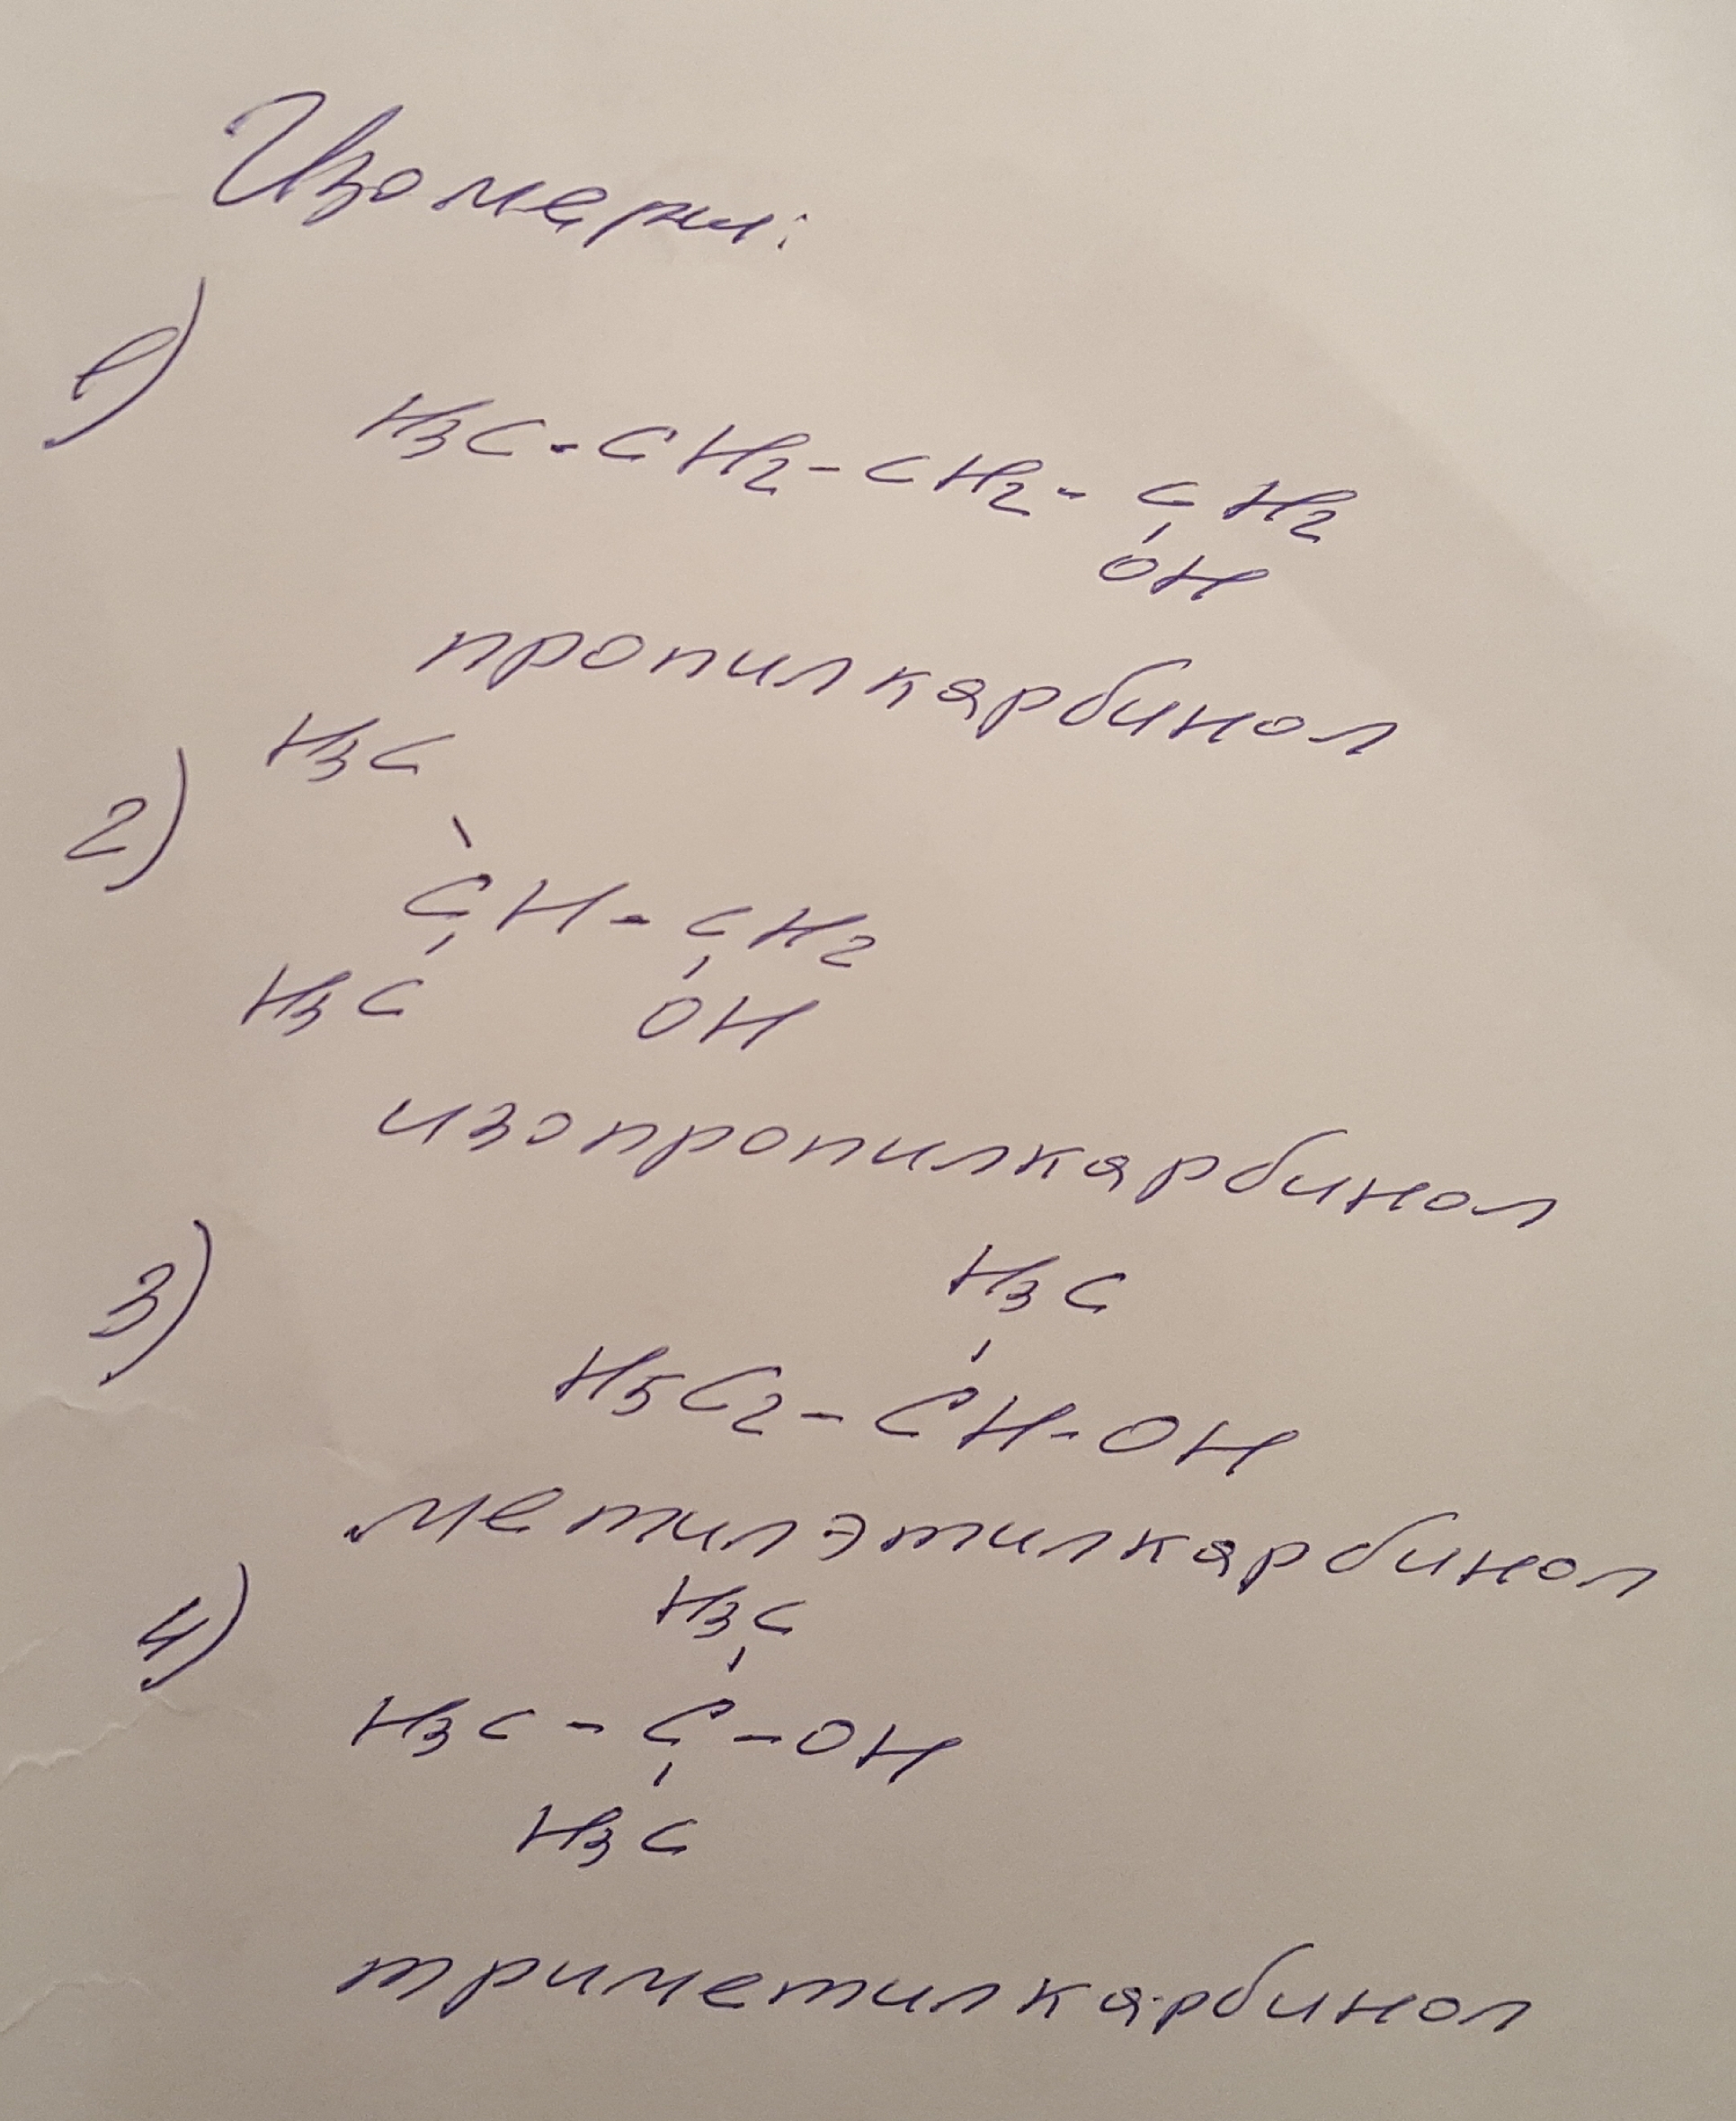 Изомеры:
1)
H3C-CH2-CH2-CH2
OH
пропилкарбинол
H3C
2)
CH-CH2
H3C OH
изопропилкарбинол
3)
H3C
H5C2-CH-OH
метилэтилкарбинол
4)
H3C
H3C-C-OH
H3C
триметилкарбинол